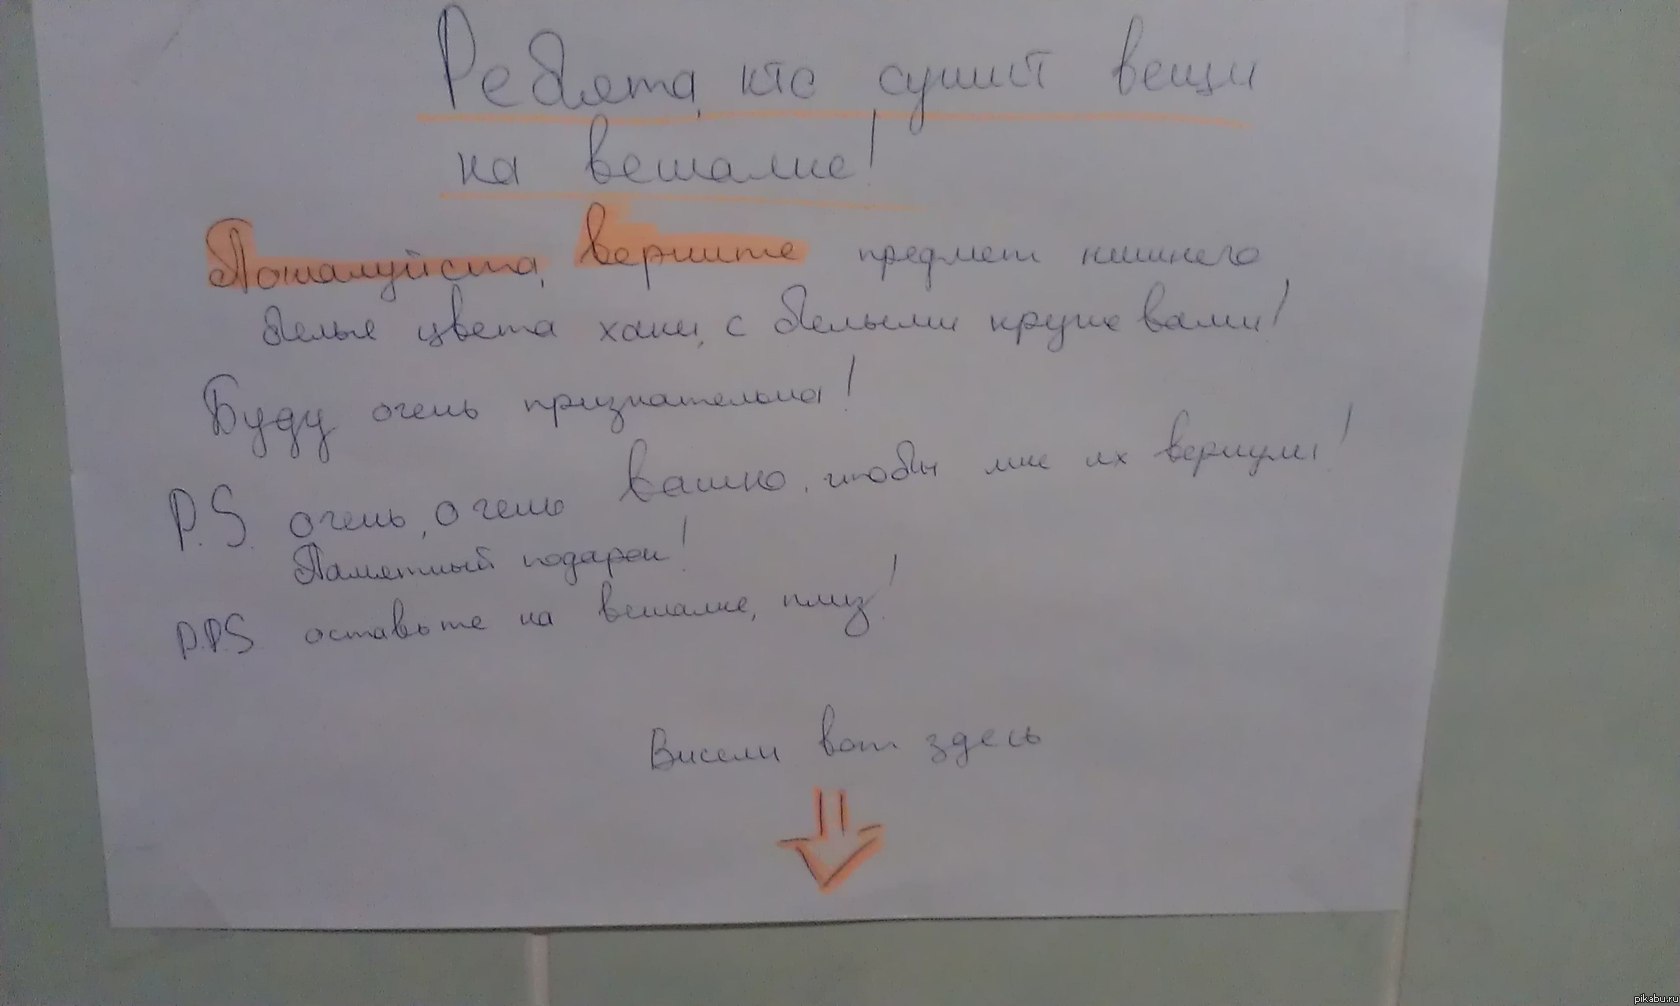 Ребята, кто сушит вещи
на вешалке!
Пожалуйста, верните предмет нижнего
белья цвета хаки, с белыми кружевами!
Буду очень признательна!
P.S. очень, очень важно, чтобы мне их вернули!
Памятный подарок!
P.P.S оставьте на вешалке, плиз!
Висели вот здесь
pikabu.ru